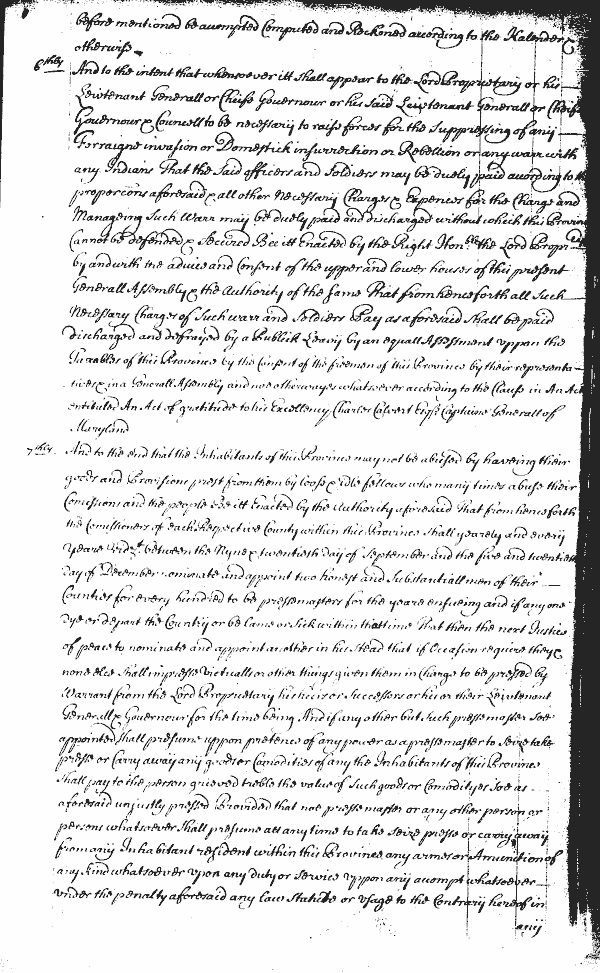 before mentioned be accompted Computed and Reckoned according to the Kalender &
otherwise
6thly And to the intent that whensoever itt shall appear to the Lord Proprietary or his
Leivtenant Generall or Cheife Governour or his said Leivtenant Generall or Cheife
Governour & Councell to be necessary to raise forces for the Suppressing of any
Forraigne invasion or Domestick insurrection or Rebellion or any warr with
any Indians That the said officers and Soldiers may be duely paid according to the
proporcons aforesaid & all other Necessary Charges & Expences for the Charge and
Manageing Such Warr may be duely paid and discharged without which this Province
Cannot be defended & Secured Bee itt Enacted by the Right Honble the Lord Propriary
by and with the advice and Consent of the upper and lower houses of this present
Generall Assembly & the Authority of the same That from henceforth all Such
Necessary Charges of Such warr and Soldiers Pay as aforesaid shall be paid
discharged and defrayed by a Publick Leavy by an equall Assessment uppon the
Taxables of this Province by the Consent of the freemen of this Province by their representa-
tives in a Generall Assembly and noe otherwayes whatsoever according to the Clause in An Act
entituled An Act of gratitude to his Excellency Charles Calvert Esqr Captaine Generall of
Maryland
7thly And to the end that the Inhabitants of this Province may not be abused by haveing their
goods and Provisions prest from them by loose & idle fellows who many times abuse their
Comissions and the people Bee itt Enacted by the Authority aforesaid That from henceforth
the Comissioners of each Respective County within this Province shall yearely and every
yeare Vidzt between the Nyne & twentieth Day of September and the five and twentieth
Day of December nominate and appoint two honest and Substantiall men of their
Counties for every hundred to be pressemasters for the yeare ensueing and if any one
Dye or depart the Country or be lame or sick within that time That then the next Justice
of peace to nominate and appoint another in his stead that if Occasion require they &
none else shall impresse Victualls or other things given them in Charge to be pressed by
Warrant from the Lord Proprietary his heirs or Successors or his or their Leivtenant
Generall & Governour for the time being And if any other but Such presse master Soe
appointed shall presume uppon pretence of any power as a pressemaster to Seize take
presse or Carry away any goods or Comodities of any the Inhabitants of this Province
shall pay to the person grieved treble the value of Such goods or Comodityes Soe as
aforesaid unjustly pressed Provided that noe pressemaster or any other person or
persons whatsoever shall presume att any time to take Seize presse or carry away
from any Inhabitant resident within this Province any armes or Amunition of
any kind whatsoever upon any duty or Service uppon any accompt whatsoever
under the penalty aforesaid any law Statute or usage to the Contrary hereof in
any